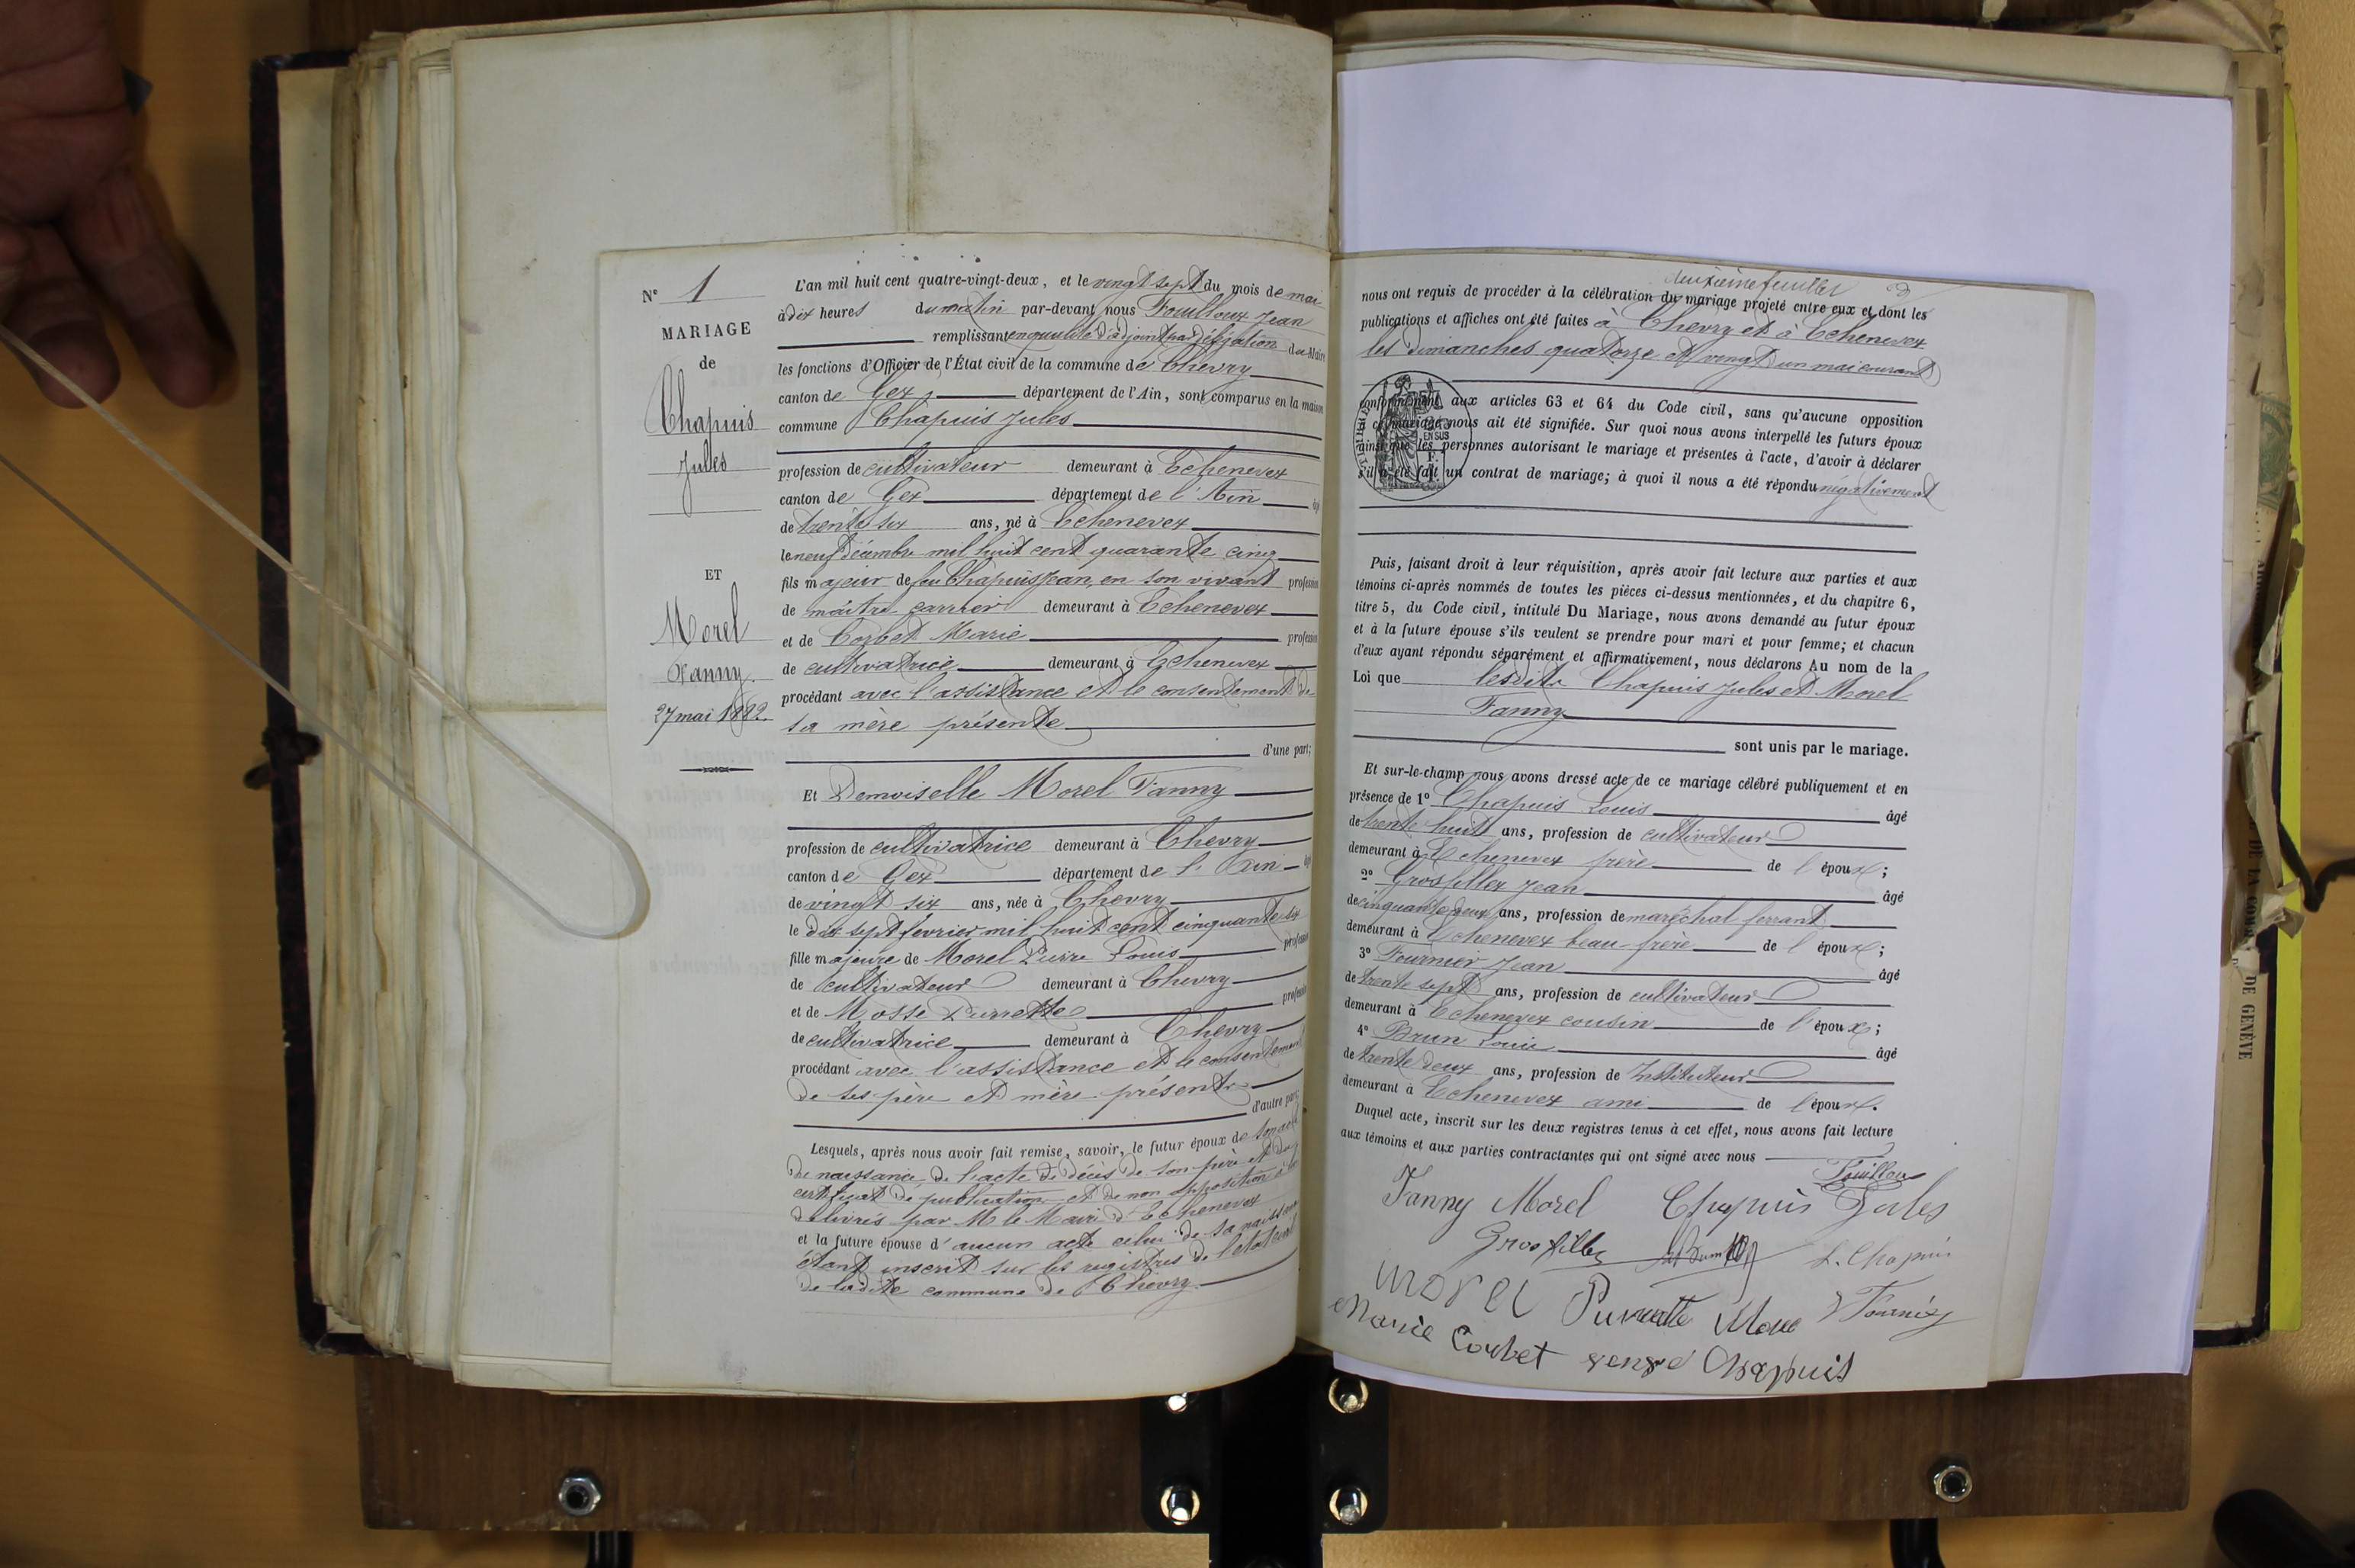 N° 1
MARIAGE
de
Chapuis
Jules
ET
Morel
Fanny
27 mai 1882.
L'an mil huit cent quatre-vingt-deux, et le vingt sept du mois de mai
à dix heures du matin par-devant nous Fouilloux Jean
remplissant en qualité d'adjoint par délégation du Maire
les fonctions d'Officier de l'État civil de la commune de Chevry
canton de Gex, département de l'Ain, sont comparus en la maison
commune Chapuis Jules
profession de cultivateur demeurant à Echenevex
canton de Gex département de l'Ain âgé
de trente six ans, né à Echenevex
le neuf décembre mil huit cent quarante cinq
fils majeur de feu Chapuis Jean, en son vivant profession
de maître carrier demeurant à Echenevex
et de Corbet Marie profession
de cultivatrice demeurant à Echenevex
procédant avec l'assistance et le consentement de
sa mère présente
d'une part;
Et Demoiselle Morel Fanny
profession de cultivatrice demeurant à Chevry
canton de Gex département de l'Ain âgé
de vingt six ans, née à Chevry
le dix sept fevrier mil huit cent cinquante six
fille majeure de Morel Pierre Louis profession
de cultivateur demeurant à Chevry
et de Mosse Pierrette profession
de cultivatrice demeurant à Chevry
procédant avec l'assistance et le consentement
de ses père et mère présents
d'autre part;
Lesquels, après nous avoir fait remise, savoir, le futur époux de son acte
de naissance, de l'acte de décès de son père et du
certificat de publication et de non opposition
délivrés par M le Maire d'Echenevex
et la future épouse d'aucun acte celui de sa naissance
étant inscrit sur les registres de l'état civil
de ladite commune de Chevry
deuxième feuillet
nous ont requis de procéder à la célébration du mariage projeté entre eux et dont les
publications et affiches ont été faites à Chevry et à Echenevex
les dimanches quatorze et vingt un mai courant
conformément aux articles 63 et 64 du Code civil, sans qu'aucune opposition
à ce mariage nous ait été signifiée. Sur quoi nous avons interpellé les futurs époux
ainsi que les personnes autorisant le mariage et présentes à l'acte, d'avoir à déclarer
s'il a été fait un contrat de mariage; à quoi il nous a été répondu négativement
EN SUS
Puis, faisant droit à leur réquisition, après avoir fait lecture aux parties et aux
témoins ci-après nommés de toutes les pièces ci-dessus mentionnées, et du chapitre 6,
titre 5, du Code civil, intitulé Du Mariage, nous avons demandé au futur époux
et à la future épouse s'ils veulent se prendre pour mari et pour femme; et chacun
d'eux ayant répondu séparément et affirmativement, nous déclarons Au nom de la
Loi que lesdits Chapuis Jules et Morel
Fanny
sont unis par le mariage.
Et sur-le-champ nous avons dressé acte de ce mariage célébré publiquement et en
présence de 1° Chapuis Louis âgé
de trente huit ans, profession de cultivateur
demeurant à Echenevex frère de l'époux;
2° Grosfillex Jean âgé
de cinquante deux ans, profession de maréchal ferrant
demeurant à Echenevex beau-frère de l'époux;
3° Fournier Jean âgé
de trente sept ans, profession de cultivateur
demeurant à Echenevex cousin de l'époux;
4° Brun Louis âgé
de trente deux ans, profession de Instituteur
demeurant à Echenevex ami de l'époux.
Duquel acte, inscrit sur les deux registres tenus à cet effet, nous avons fait lecture
aux témoins et aux parties contractantes qui ont signé avec nous
Fouilloux
Fanny Morel Chapuis Jules
Grosfillex Brun L. Chapuis
morel Pierrette Fournier
Marie Corbet Chapuis
DE GENÈVE